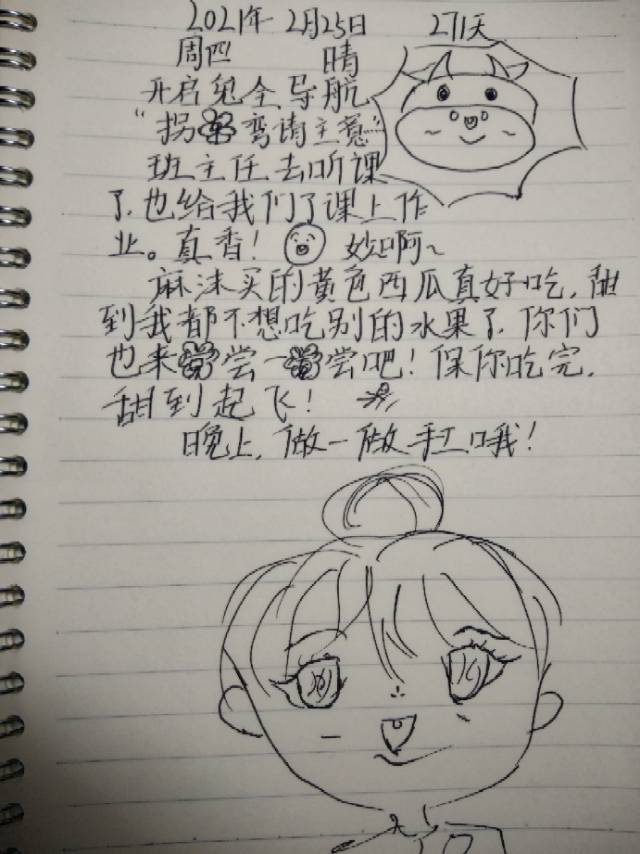 2021年 2月25日 271天
周四 晴
开启完全导航
“拐弯请主意”
班主任去听课
了,也给我们了课上作
业。真香! 妙啊~
麻沫买的黄色西瓜真好吃,甜
到我都不想吃别的水果了,你们
也来尝一尝吧!保你吃完,
甜到起飞!
晚上,做一做手工哦!